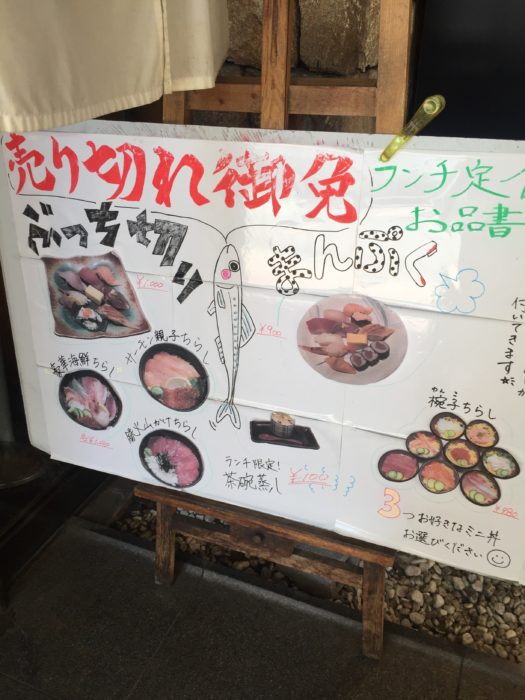 売り切れ御免
ランチ定
お品書
ぶっち切り
まんぷく
¥1,000
¥900
サーモン親子ちらし
海鮮ちらし
山かけちらし
ランチ限定!
茶碗蒸し
¥100
にいてきます☆
わんこ
椀子ちらし
¥880
3つお好きなミニ丼
お選びください